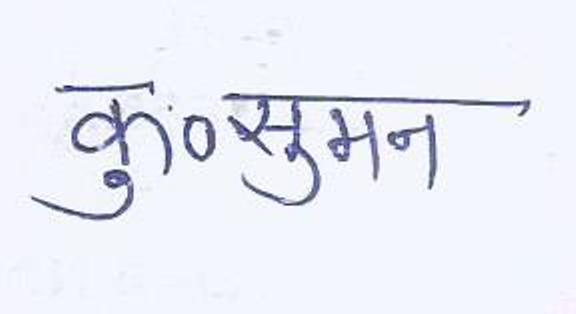 कुं०सुमन